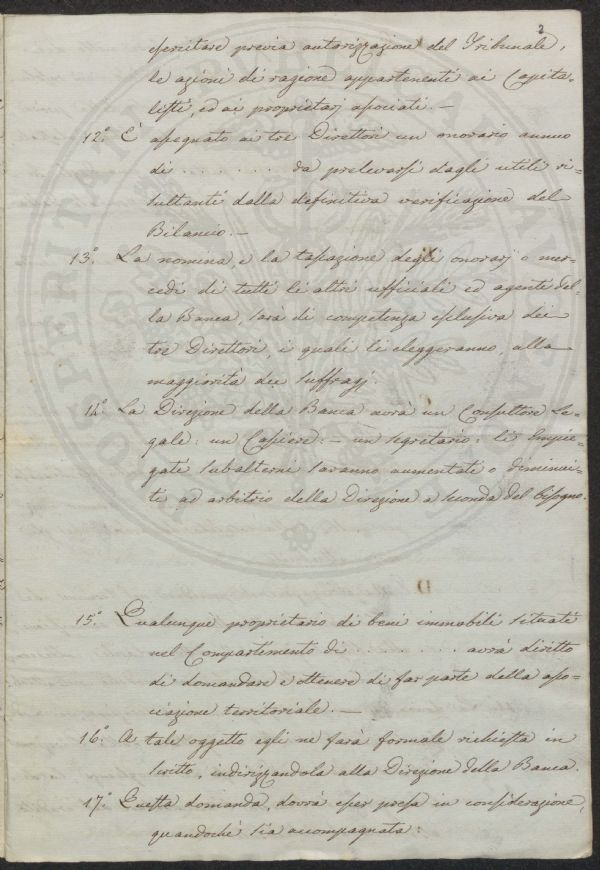 2
esercitare previa autorizzazione del Tribunale,
le azioni di ragione appartenenti ai Capita-
listi, ed ai proprietarj associati. –
12.° È assegnato ai tre Direttori un onorario annuo
di . . . . . . . da prelevarsi dagli utili ri-
sultanti dalla definitiva verificazione del
Bilancio. –
13.° La nomina, e la tassazione degli onorarj o mer-
cedi di tutti li altri ufficiali ed agenti del-
la Banca, sarà di competenza esclusiva dei
tre Direttori, i quali li eleggeranno, alla
maggiorità dei suffragj.
14.° La Direzione della Banca avrà un Consultore Le-
gale: un Cassiere: – un segretario: li Impie-
gati subalterni saranno aumentati o diminui-
ti ad arbitrio della Direzione a seconda del bisogno.
D
15.° Qualunque proprietario di beni immobili situati
nel Compartimento di . . . . . . . avrà diritto
di domandare e ottenere di far parte della asso-
ciazione territoriale. –
16.° A tale oggetto egli ne farà formale richiesta in
scritto, indirizzandola alla Direzione della Banca.
17.° Questa domanda, dovrà esser presa in considerazione,
quandochè sia accompagnata: